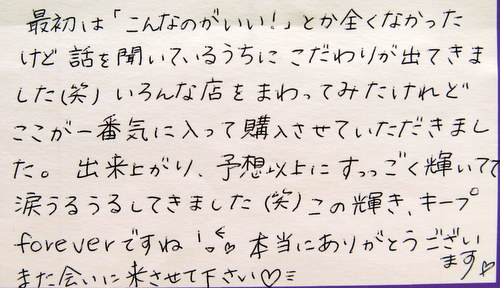 最初は「こんなのがいい!」とか全くなかった
けど 話を聞いているうちに こだわりが出てきま
した(笑) いろんな店をまわってみたけれど
ここが一番気に入って購入させていただきまし
た。 出来上がり、予想以上にすっっごく輝いてて
涙うるうるしてきました (笑) この輝き、キープ
foreverですね 本当にありがとうござい
ます♡
また会いに来させて下さい♡